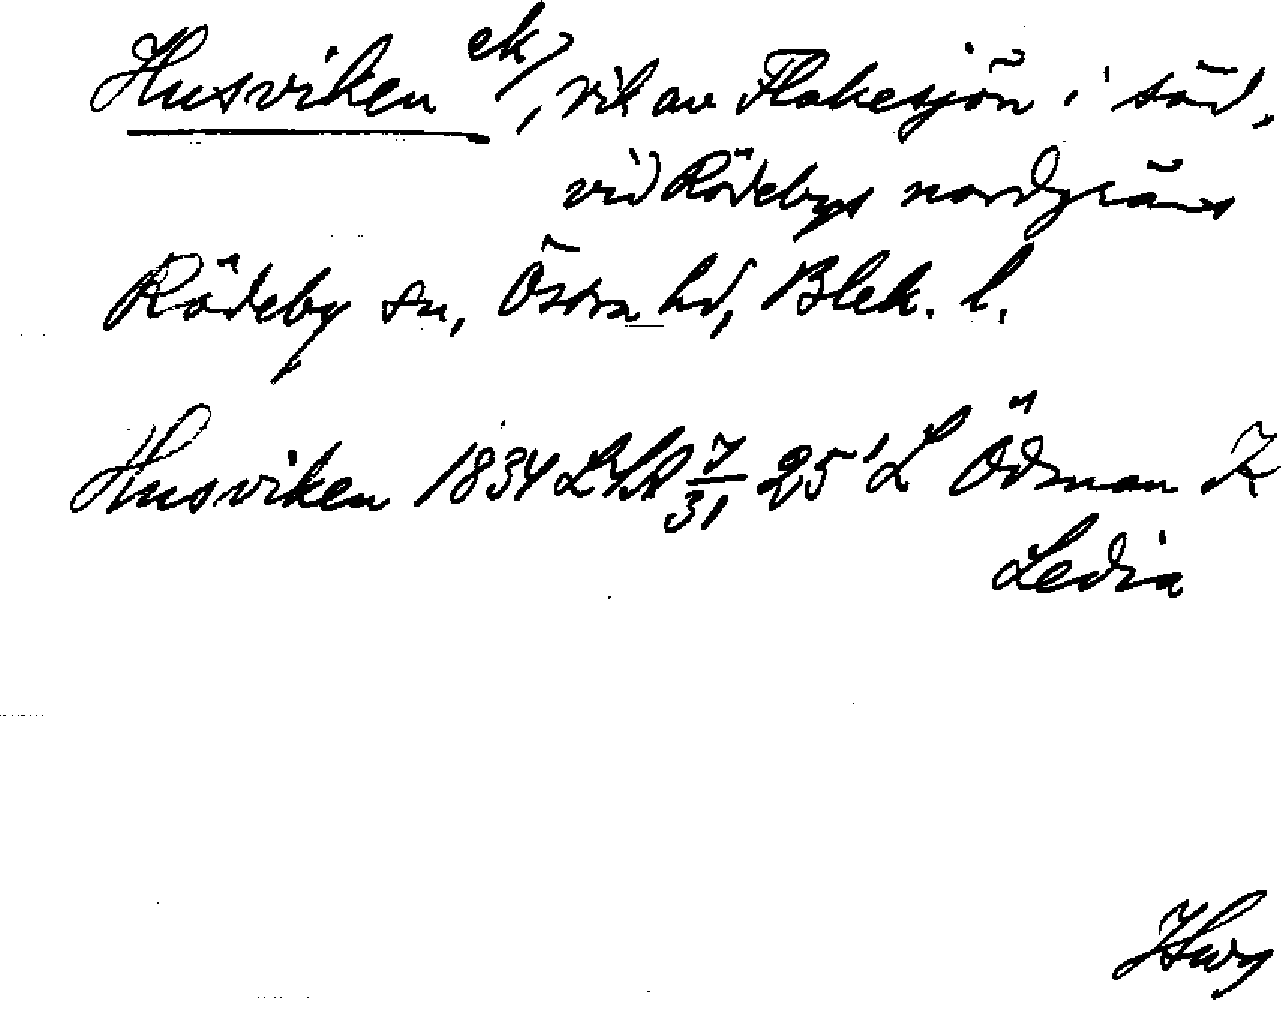 Husviken ek), vik av Flakesjön i söd,
vid Rödebys nordgräns
Rödeby sn, Östra hd, Blek. l.
Husviken 1834 LSA 7/31 25 'L Ödman K
Ledia